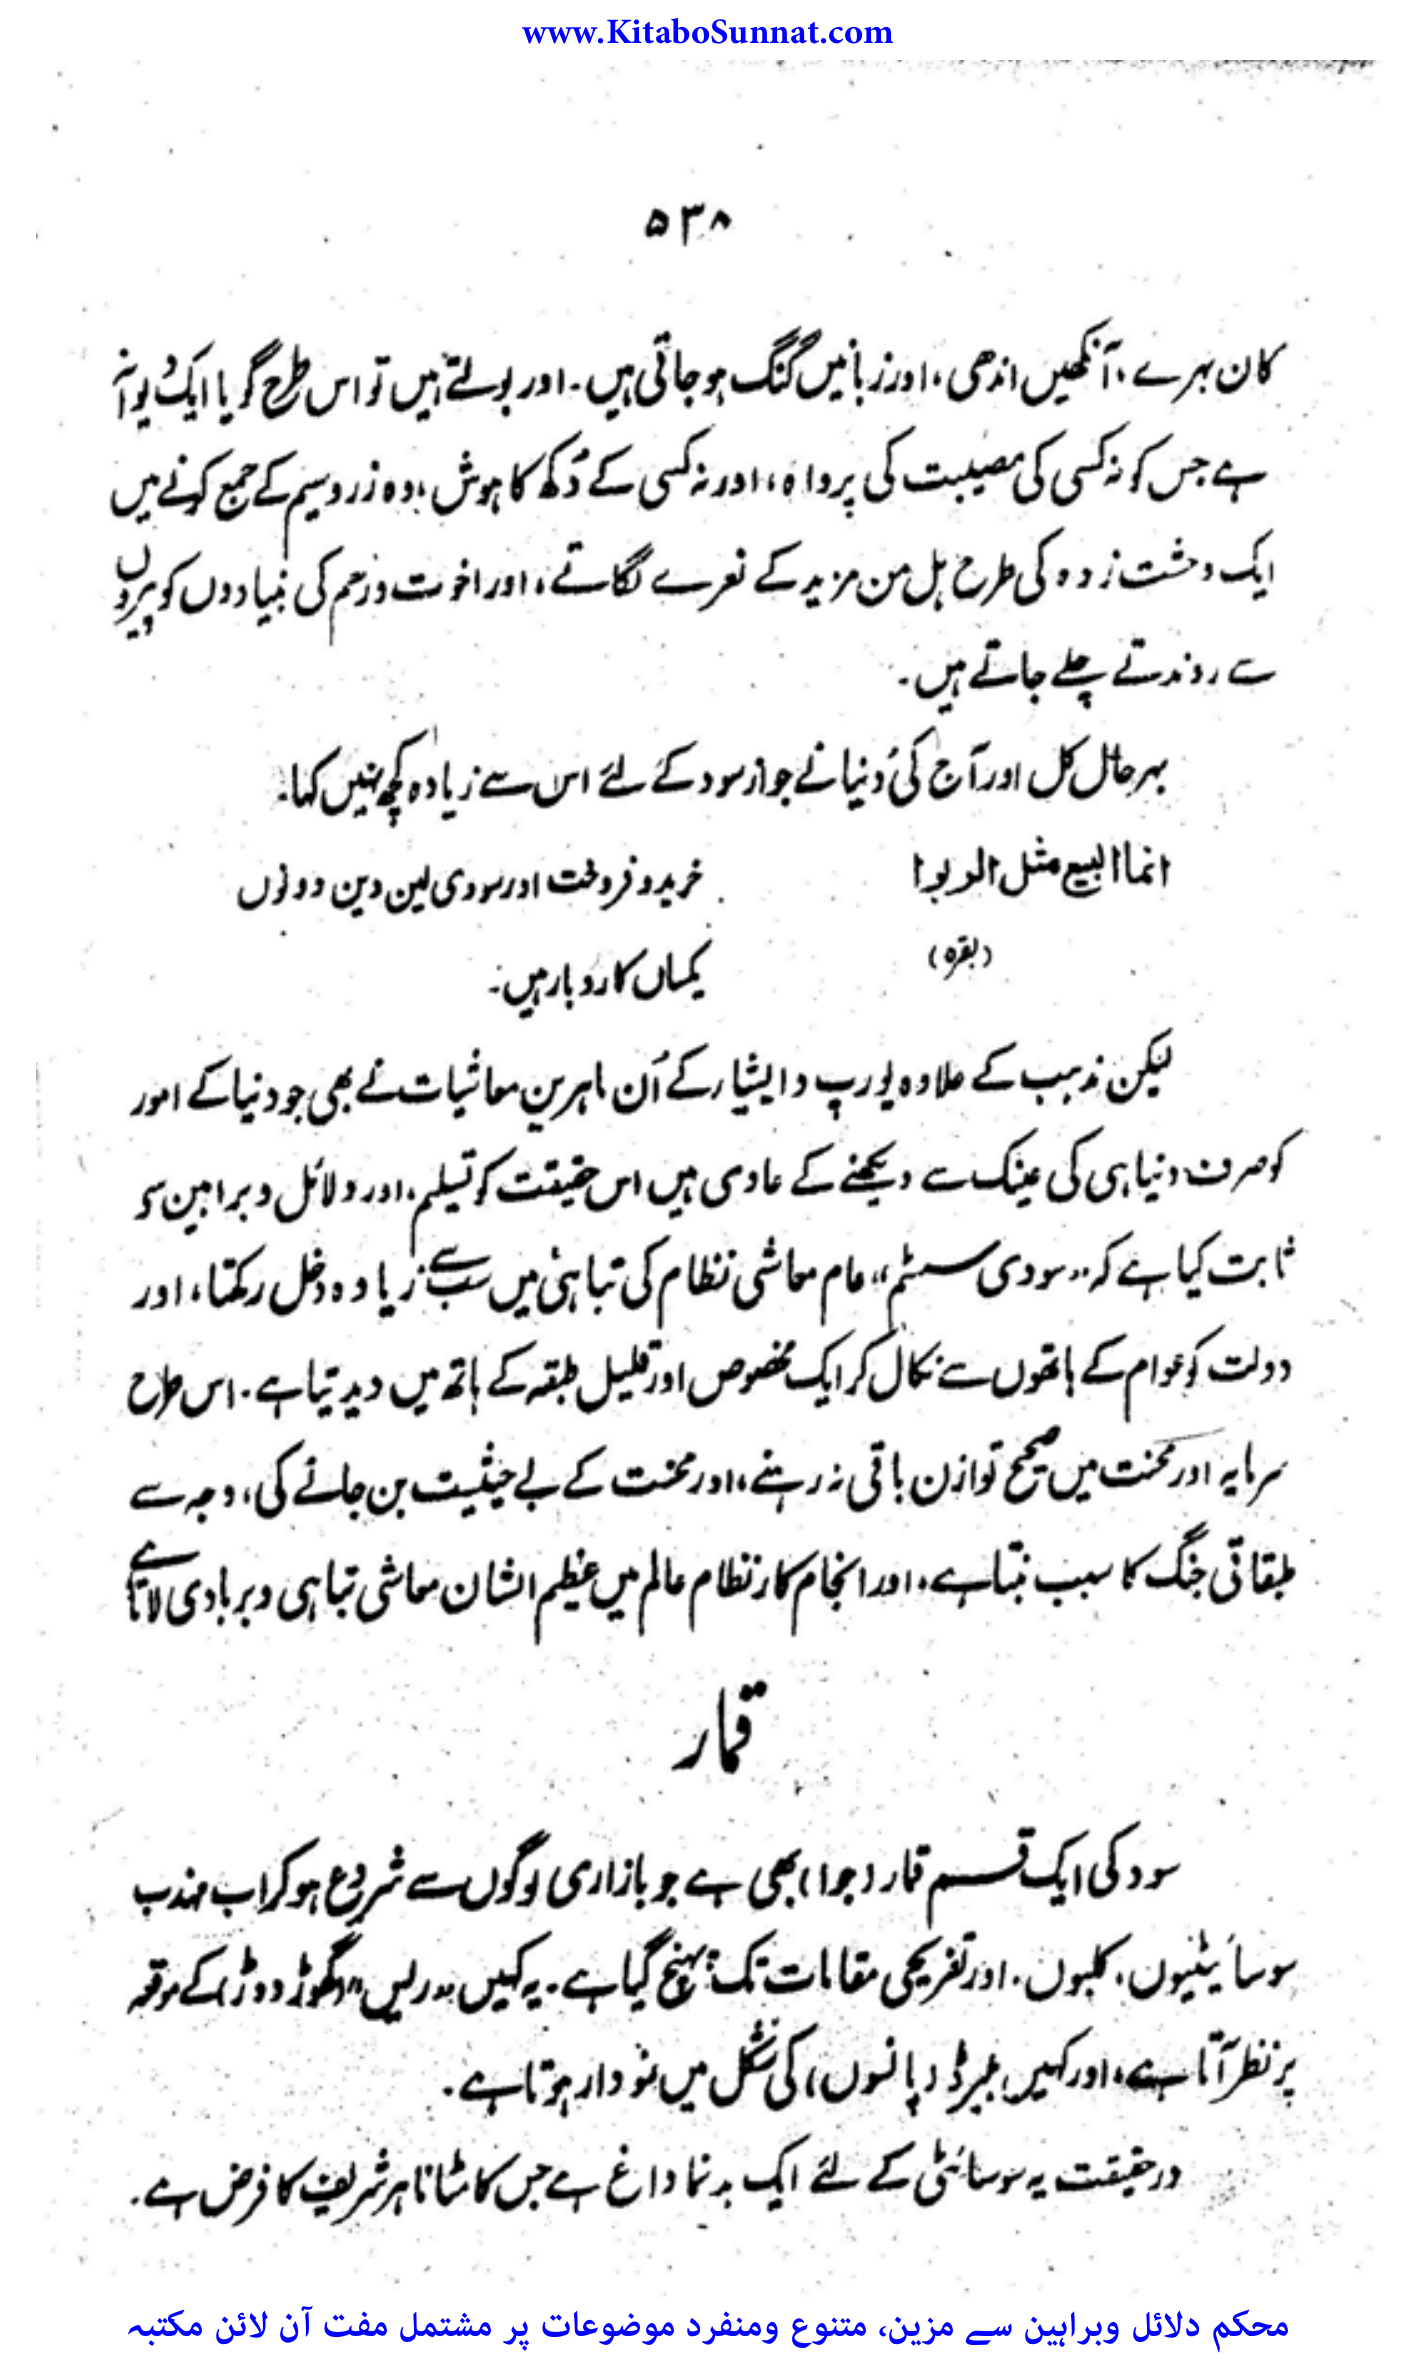 www.KitaboSunnat.com
۵۳۸
کان بہرے، آنکھیں اندھی، اور زبانیں گنگ ہو جاتی ہیں۔ اور بولتے ہیں تو اس طرح گویا ایک دیوانہ
ہے جس کو نہ کسی کی مصیبت کی پرواہ، اور نہ کسی کے دُکھ کا ہوش، وہ زر وسیم کے جمع کرنے میں
ایک وحشت زدہ کی طرح ہل من مزید کے نعرے لگاتے، اور اخوت ورحم کی بنیادوں کو پیروں
سے روندتے چلے جاتے ہیں۔
بہرحال کل اور آج کی دُنیا نے جواز سود کے لئے اس سے زیادہ کچھ نہیں کہا۔
انما البیع مثل الربوا
خرید و فروخت اور سودی لین دین دونوں
(بقرہ)
یکساں کاروبار ہیں۔
لیکن مذہب کے علاوہ یورپ و ایشیاء کے اُن ماہرین معاشیات نے بھی جو دنیا کے امور
کو صرف دنیا ہی کی عینک سے دیکھنے کے عادی ہیں اس حقیقت کو تسلیم، اور دلائل و براہین سے
ثابت کیا ہے کہ "سودی سسٹم" عام معاشی نظام کی تباہی میں سب سے زیادہ دخل رکھتا، اور
دولت کو عوام کے ہاتھوں سے نکال کر ایک مخصوص اور قلیل طبقہ کے ہاتھ میں دیدیتا ہے۔ اس طرح
سرمایہ اور محنت میں صحیح توازن باقی نہ رہنے، اور محنت کے بے حیثیت بن جانے کی، وجہ سے
طبقاتی جنگ کا سبب بنتا ہے، اور انجام کار نظام عالم میں عظیم الشان معاشی تباہی و بربادی لاتا ہے
قمار
سود کی ایک قسم قمار (جوا) بھی ہے جو بازاری لوگوں سے شروع ہو کر اب مہذب
سوسائیٹیوں، کلبوں، اور تفریحی مقامات تک پہنچ گیا ہے۔ یہ کہیں "ریس" (گھوڑ دوڑ) کے موقعہ
پر نظر آتا ہے، اور کہیں بلیرڈ (پانسوں) کی شکل میں نمودار ہوتا ہے۔
درحقیقت یہ سوسائٹی کے لئے ایک بدنما داغ ہے جس کا مٹانا ہر شریف کا فرض ہے۔
محکم دلائل وبراہین سے مزین، متنوع ومنفرد موضوعات پر مشتمل مفت آن لائن مکتبہ